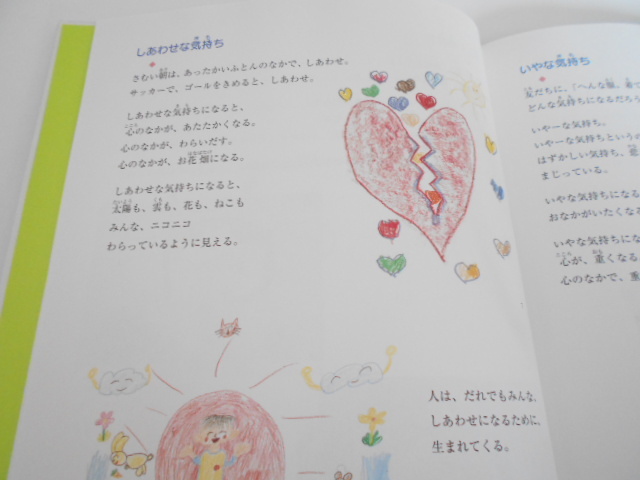 しあわせな気持ち
さむい朝は、あったかいふとんのなかで、しあわせ。
サッカーで、ゴールをきめると、しあわせ。
しあわせな気持ちになると、
心のなかが、あたたかくなる。
心のなかが、わらいだす。
心のなかが、お花畑になる。
しあわせな気持ちになると、
太陽も、雲も、花も、ねこも
みんな、ニコニコ
わらっているように見える。
人は、だれでもみんな、
しあわせになるために、
生まれてくる。
いやな気持ち
友だちに、「へんな顔。
どんな気持ちになるだろ
いやーな気持ち。
いやーな気持ちというの
はずかしい気持ち、
まじっている。
いやな気持ちになる
おなかがいたくな
いやな気持ちにな
心が、重くなる
心のなかで、重